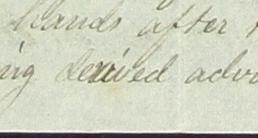 hands after
ing derived adv